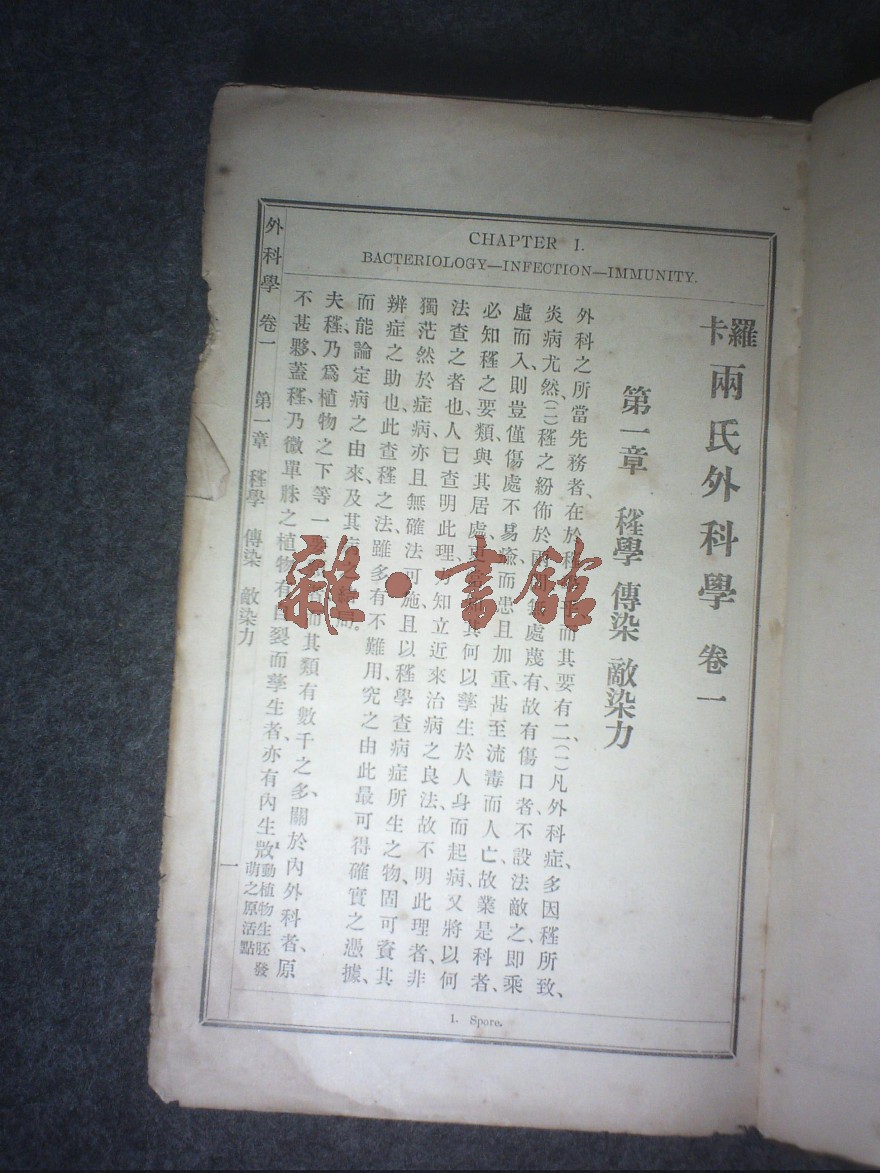 CHAPTER I.
BACTERIOLOGY—INFECTION—IMMUNITY.
羅卡兩氏外科學 卷一
第一章 𥻘學 傳染 敵染力
外科之所當先務者、在於
而其要有二、(一)凡外科症、多因𥻘所致、
炎病尤然(二)𥻘之紛佈於兩間
處蔑有、故有傷口者、不設法敵之、即乘
虛而入、則豈僅傷處不易瘉、而患且加重、甚至流毒而人亡、故業是科者、
必知𥻘之要類、與其居處、更
其何以孳生於人身而起病、又將以何
法查之者也、人已查明此理、方知立近來治病之良法、故不明此理者、非
獨茫然於症病、亦且無確法可施、且以𥻘學查病症所生之物、固可資其
辨症之助也、此查𥻘之法、雖多有不難用、究之由此最可得確實之憑據、
而能論定病之由來、及其
結局。
夫𥻘、乃爲植物之下等一
而其類有數千之多、關於內外科者、原
不甚夥、蓋𥻘、乃微單牀之植物、有自裂而孳生者、亦有內生㲉1動植物生胚發萌之原活點
外科學 卷一 第一章 𥻘學 傳染 敵染力 一
1. Spore.
雜·書館